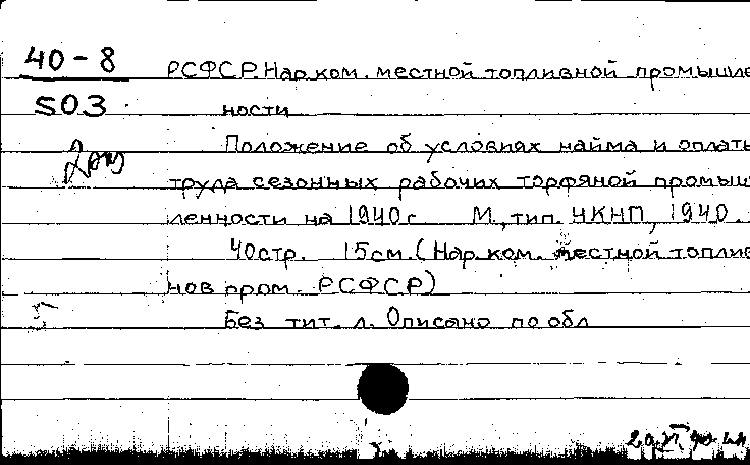 40-8
503
РСФСР. Нар. ком. местной топливной промышле
ности
Положение об условиях найма и оплаты
труда сезонных рабочих торфяной промыш
ленности на 1940 г. М., тип. ЧКНП, 1940.
40 стр. 15 см. (Нар. ком. местной топлив
нов пром. РСФСР)
Без тит. л. Описано по обл